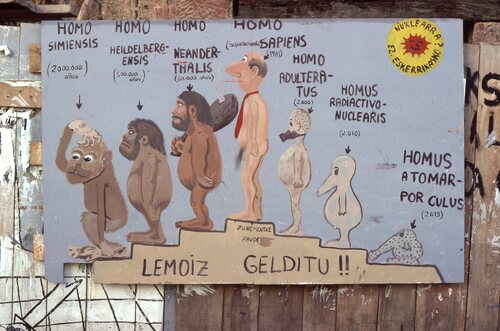 HOMO
SIMIENSIS
(2.000.000
años)
HOMO
HEIDELBERG-
ENSIS
(500.000
años)
HOMO
NEANDER-
THALIS
HOMO
SAPIENS
(1981)
HOMO
ADULTERA-
TUS
(2.000)
HOMUS
RADIACTIVO-
NUCLEARIS
(2.010)
HOMUS
ATOMAR-
POR CULUS
(2.013)
NUKLEARRA?
EZ ESKERRIK ASKO
ZU HEMENTXE
ZAUDE
LEMOIZ GELDITU !!